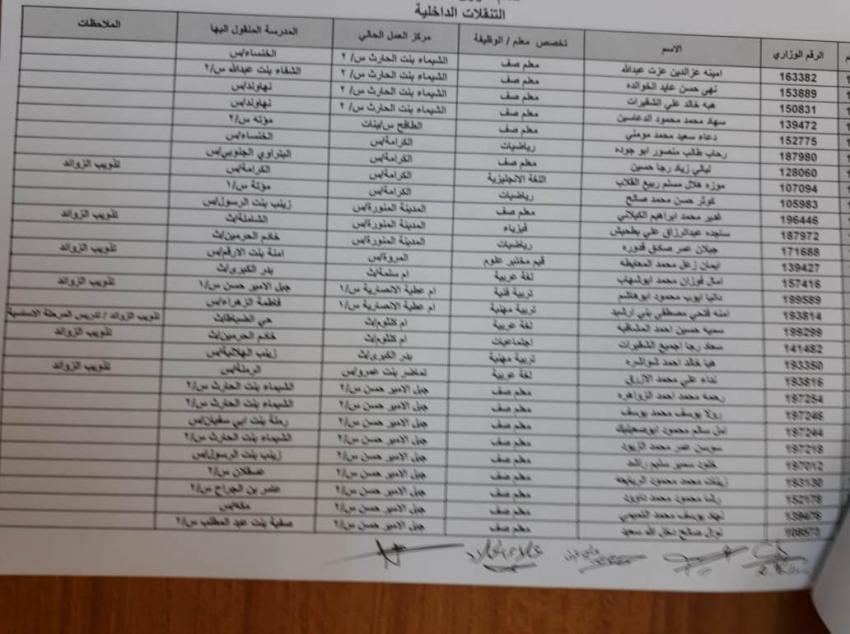 التنقلات الداخلية
م الرقم الوزاري الاسم تخصص معلم / الوظيفة مركز العمل الحالي المدرسة المنقول اليها الملاحظات
163382 امينه عزالدين عزت عبدالله معلم صف الشيماء بنت الحارث س/٢ الخنساء/س
153889 نهى حسن عايد الخوالده معلم صف الشيماء بنت الحارث س/٢ الشفاء بنت عبدالله س/٢
150831 هبه خالد علي الشقيرات معلم صف الشيماء بنت الحارث س/٢ نهاوند/س
139472 سهاد محمد محمود الدعاسين معلم صف الشيماء بنت الحارث س/٢ نهاوند/س
152775 دعاء سعيد محمد مومني معلم صف الطافح س/بنات مؤته س/٢
187980 رحاب طالب منصور ابو جوده رياضيات الكرامة/س الخنساء/س
128060 ليالي زياد رجا حسين معلم صف الكرامة/س البتراوي الجنوبي/س
107094 موزه هلال مسلم ربيع القلاب اللغة الانجليزية الكرامة/س الكرامة/س تذويب الزوائد
105983 كوثر حسن محمد صالح رياضيات الكرامة/س مؤتة س/١
196446 غدير محمد ابراهيم الكيلاني معلم صف المدينة المنورة/س زينب بنت الرسول/س تذويب الزوائد
187972 ساجده عبدالرزاق علي بطحيش فيزياء المدينة المنورة/س الشاملة/ث
171688 جيلان عمر صادق قدوره رياضيات المدينة المنورة/س خادم الحرمين/ث
139427 ايمان زعل محمد المعايطه قيم مختبر علوم المروة/س امنة بنت الارقم/س تذويب الزوائد
157416 امال فوزان محمد ابوشهاب لغة عربية ام سلمة/ث بدر الكبرى/ث
199589 داليا ايوب محمود ابوهاشم تربية فنية ام عطية الانصارية س/١ جبل الامير حسن س/١ تذويب الزوائد
193814 امنه فتحي مصطفى بني ارشيد تربية مهنية ام عطية الانصارية س/١ فاطمة الزهراء/س
199299 سميه حسين احمد المشاقبه لغة عربية ام كلثوم/ث حي الضباط/ث تذويب الزوائد / تدريس المرحلة الاساسية
141482 سعاد رجا اجميع الشقيرات اجتماعيات ام كلثوم/ث خادم الحرمين/ث تذويب الزوائد
193350 هيا خالد احمد شواشره تربية مهنية بدر الكبرى/ث زينب الهلالية/س
193816 نداء علي محمد الازرق لغة عربية تماضر بنت عمرو/س الرملة/س تذويب الزوائد
197254 رحمه محمد احمد الزواهره معلم صف جبل الامير حسن س/٢ الشيماء بنت الحارث س/٢
197246 رولا يوسف محمد يوسف معلم صف جبل الامير حسن س/٢ الشيماء بنت الحارث س/٢
197244 امل سالم محمود ابوصعيليك معلم صف جبل الامير حسن س/٢ رملة بنت ابي سفيان/س
197218 سوسن عمر محمد الزيود معلم صف جبل الامير حسن س/٢ الشيماء بنت الحارث س/٢
197012 خلود سمير سليم راشد معلم صف جبل الامير حسن س/٢ زينب بنت الرسول/س
193130 زينات محمد محمود الربايعه معلم صف جبل الامير حسن س/٢ عسقلان س/٢
152178 رشا محمود محمد معلم صف جبل الامير حسن س/٢ عامر بن الجراح س/٢
139476 نهاد يوسف محمد التميمي معلم صف جبل الامير حسن س/٢ مكة/س
نوال صالح دخل الله سعيد معلم صف جبل الامير حسن س/٢ صفية بنت عبد المطلب س/٢